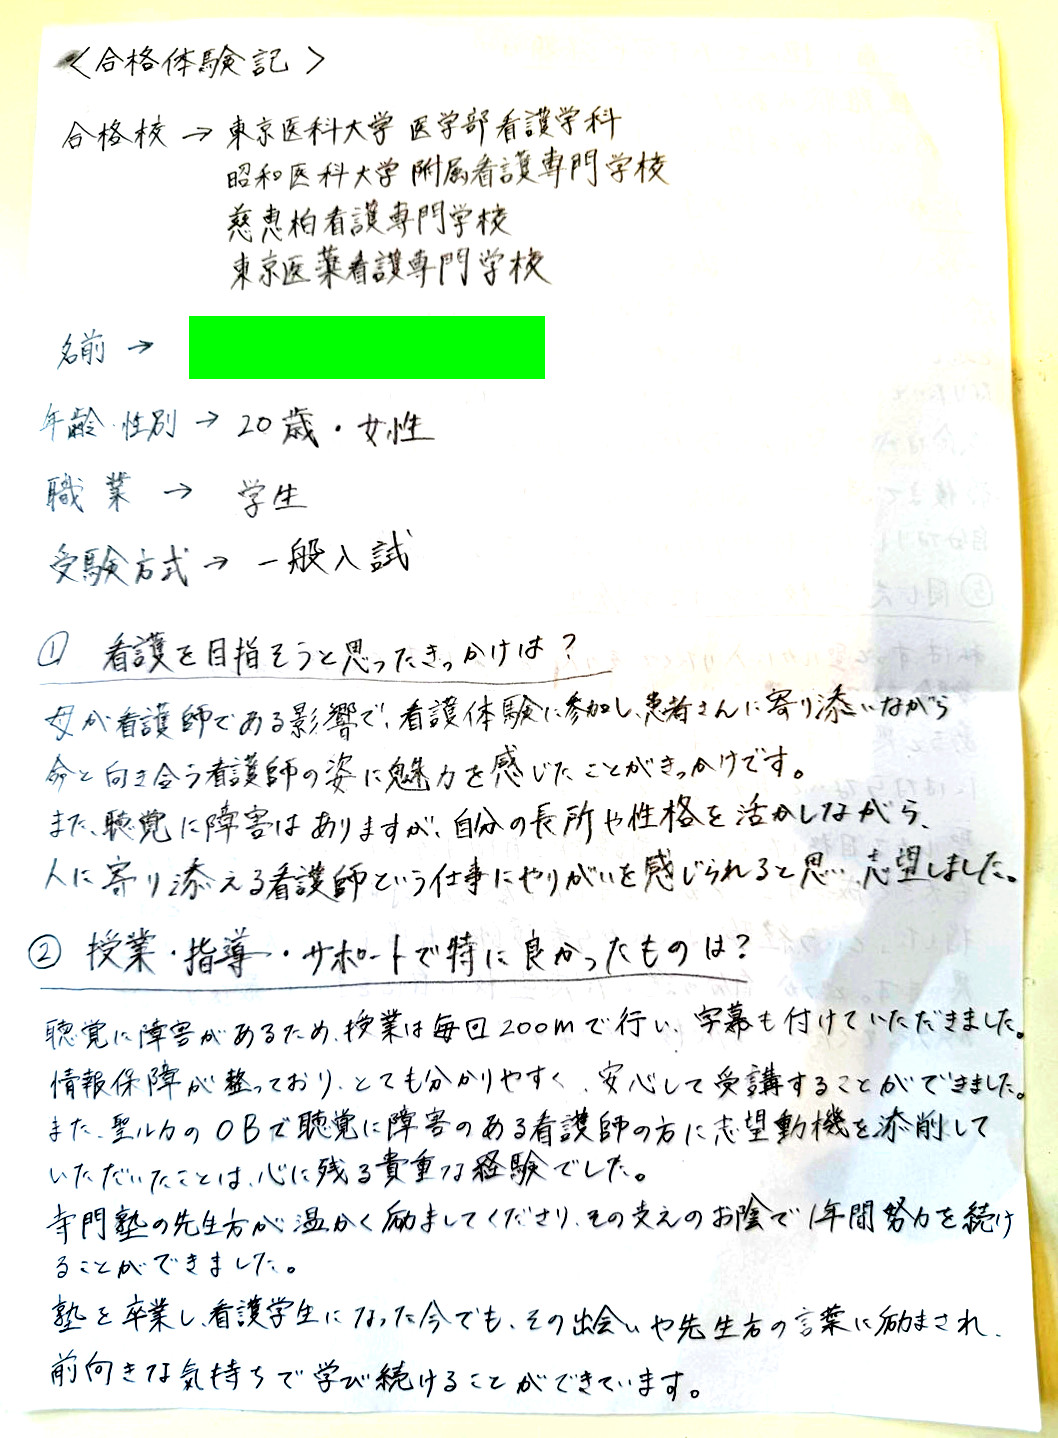 〈合格体験記〉
合格校 → 東京医科大学 医学部看護学科
昭和医科大学 附属看護専門学校
慈恵柏看護専門学校
東京医薬看護専門学校
名前 →
年齢・性別 → 20歳・女性
職業 → 学生
受験方式 → 一般入試
① 看護を目指そうと思ったきっかけは？
母が看護師である影響で、看護体験に参加し、患者さんに寄り添いながら
命と向き合う看護師の姿に魅力を感じたことがきっかけです。
また、聴覚に障害はありますが、自分の長所や性格を活かしながら、
人に寄り添える看護師という仕事にやりがいを感じられると思い、志望しました。
② 授業・指導・サポートで特に良かったものは？
聴覚に障害があるため、授業は毎回zoomで行い、字幕も付けていただきました。
情報保障が整っており、とても分かりやすく、安心して受講することができました。
また、聖ルカのOBで聴覚に障害のある看護師の方に志望動機を添削して
いただいたことは、心に残る貴重な経験でした。
専門塾の先生方が温かく励ましてくださり、その支えのお陰で1年間努力を続け
ることができました。
塾を卒業し、看護学生になった今でも、その出会いや先生方の言葉に励まされ、
前向きな気持ちで学び続けることができています。